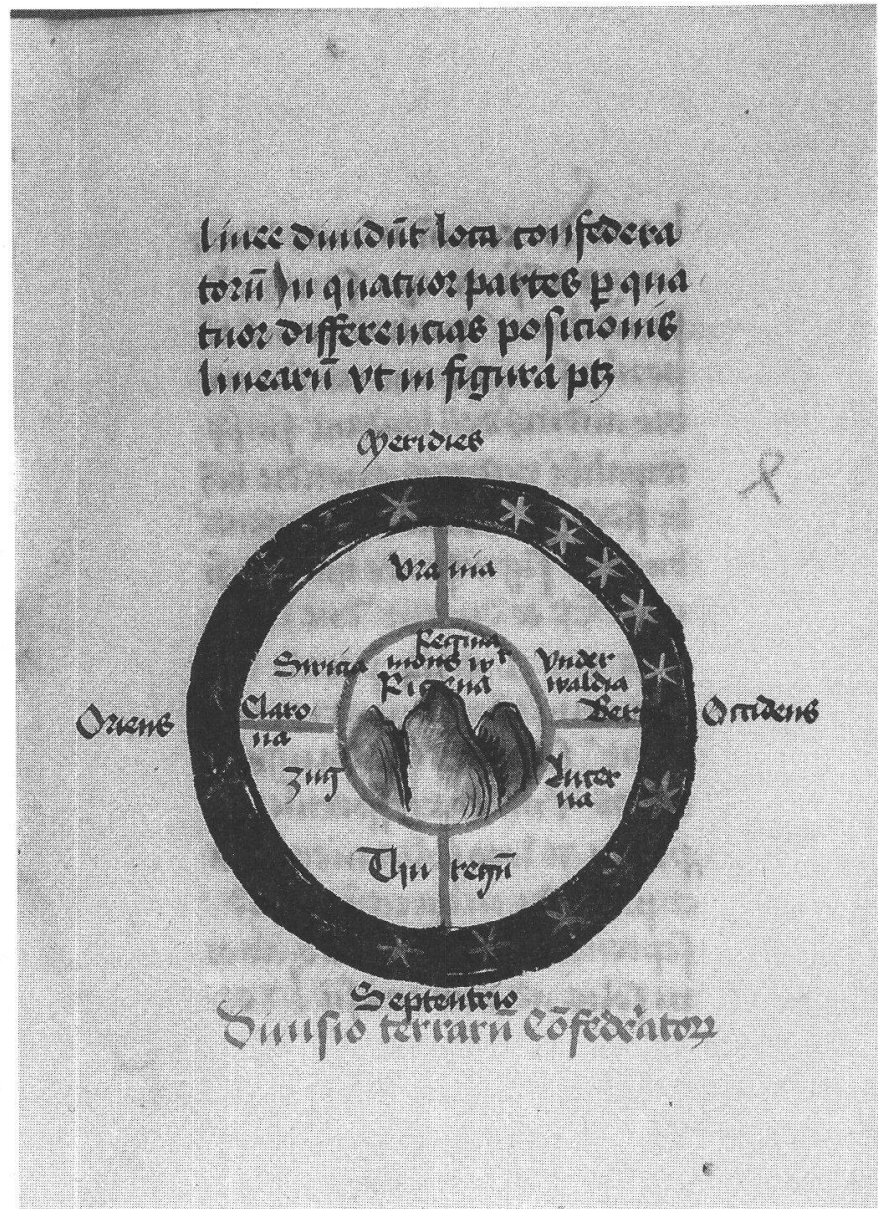 linee diuidūt loca confedera
torū In quatuor partes ꝑ qua
tuor differencias posicionis
linearū vt in figura ptꝫ
Meridies
Vrania
Regina
mons
Rigena
Switia
Vnder
waldia
Oriens
Claro
na
Bern
Occidens
Zug
Lucer
na
Thuregū
Septentrio
Diuisio terrarū Cōfederatoꝝ